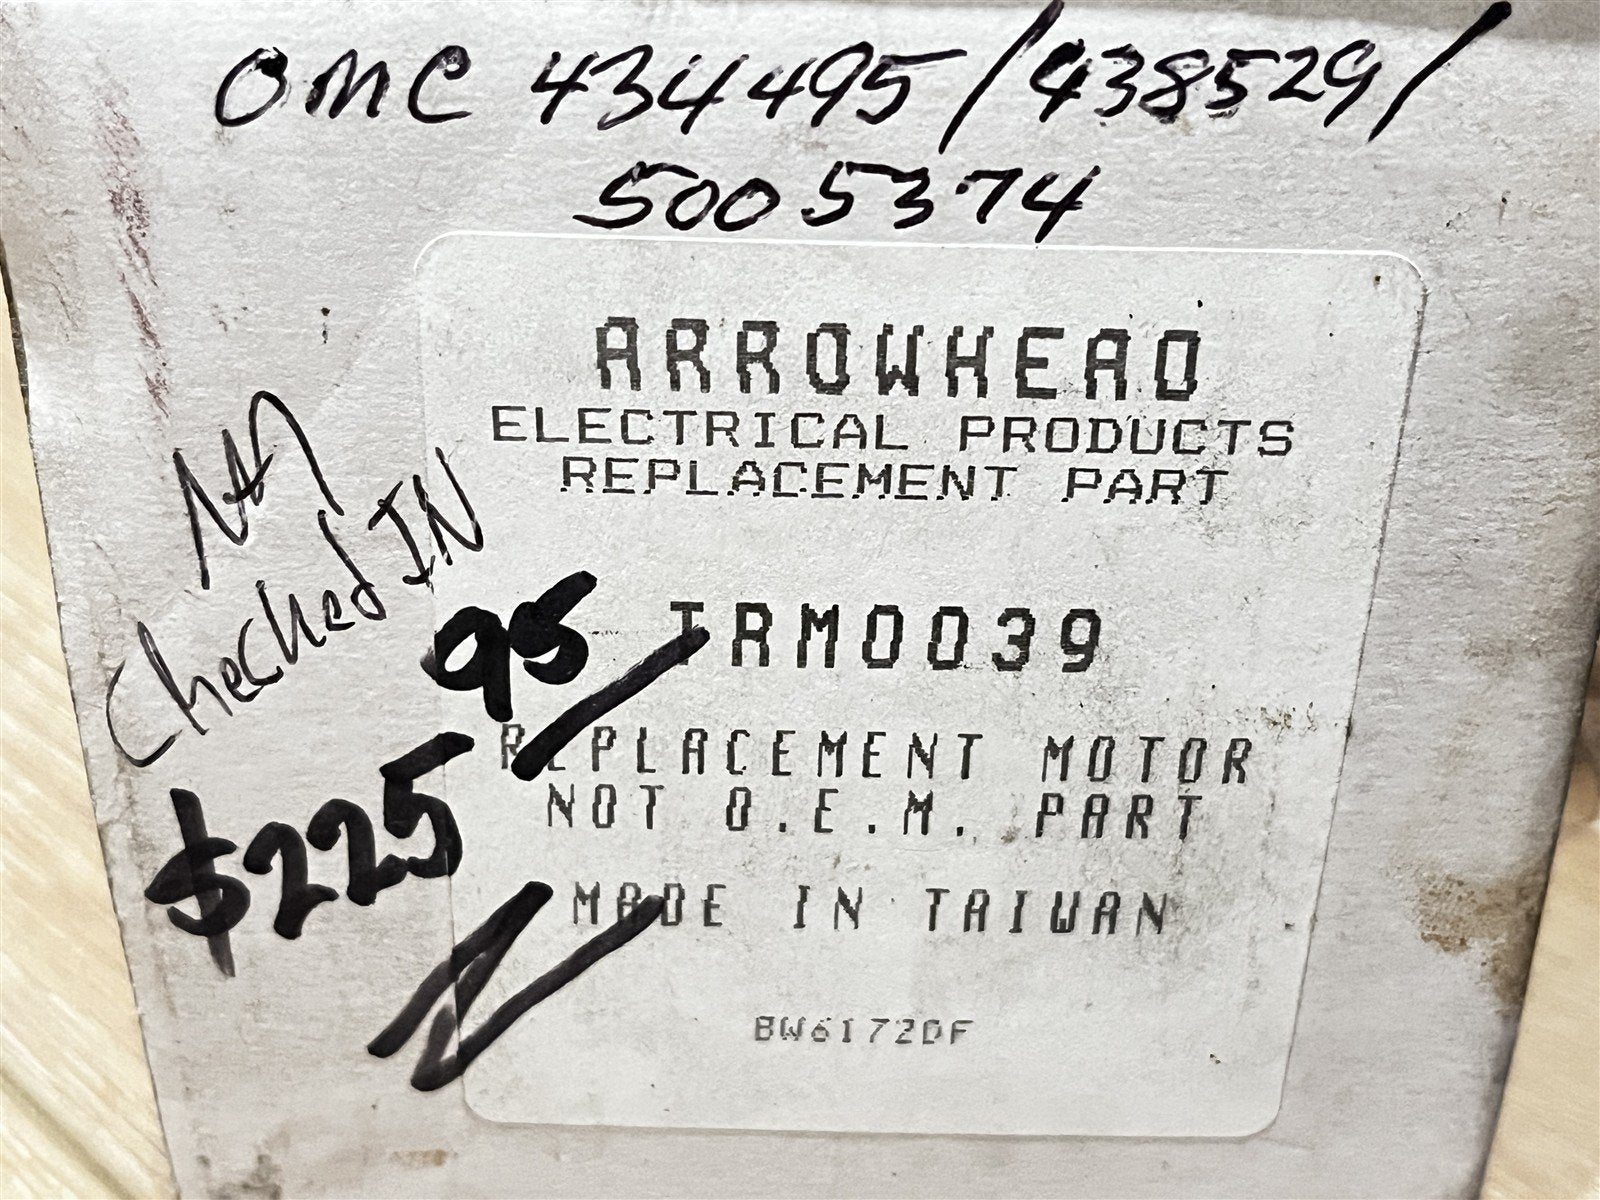 OMC 434495/438529/
5005374
ARROWHEAD
ELECTRICAL PRODUCTS
REPLACEMENT PART
Checked IN
TRM0039
$225 95
REPLACEMENT MOTOR
NOT O.E.M. PART
MADE IN TAIWAN
BW6172DF